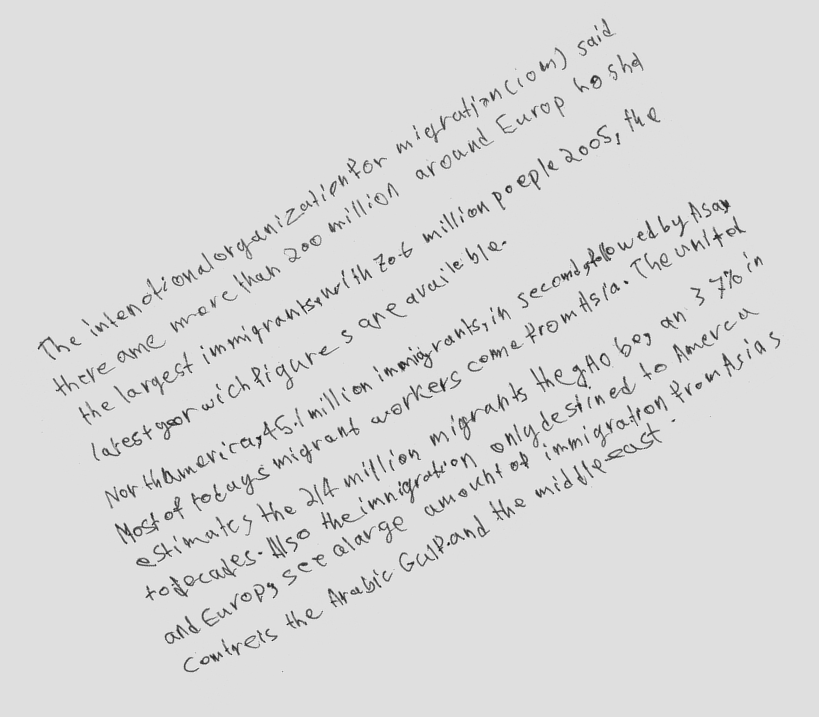 The intenotionalorganization for migration (iom) said
there ame more than 200 million around Europ hoshd
the largest immigrants, with 70.6 million poeple 2005, the
latest year wich figures are availeble.
North america, 45.1 million immigrants, in second, followed by Asay
Most of todays migrant workers come from Asia. The united
estimates the 214 million migrants the an 37% in
to decades. Also the imnigration only destined to Amerca
and Europ, see a large amount of immigration from Asias
Comtreis the Arabic Gulf. and the middle east.